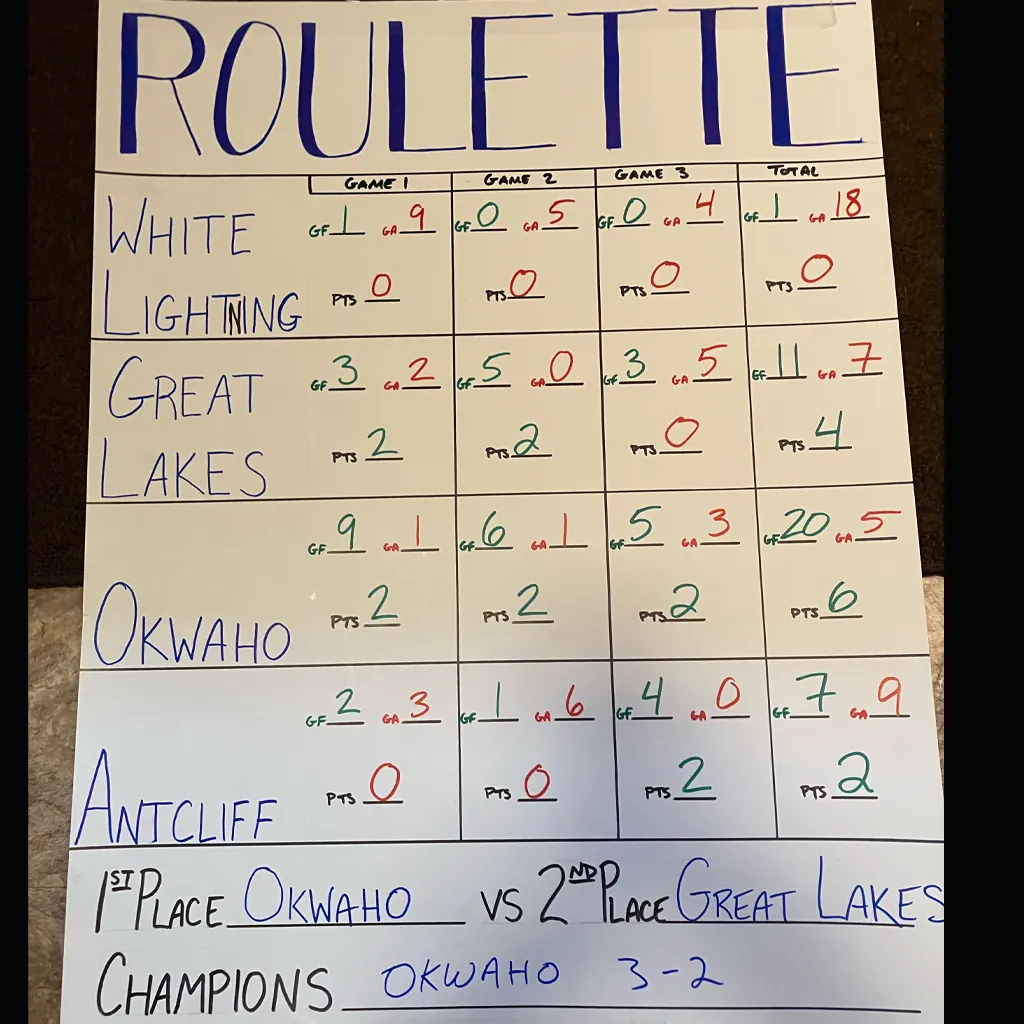 ROULETTE
GAME 1 GAME 2 GAME 3 TOTAL
WHITE GF 1 GA 9 GF 0 GA 5 GF 0 GA 4 GF 1 GA 18
LIGHTNING PTS 0 PTS 0 PTS 0 PTS 0
GREAT GF 3 GA 2 GF 5 GA 0 GF 3 GA 5 GF 11 GA 7
LAKES PTS 2 PTS 2 PTS 0 PTS 4
GF 9 GA 1 GF 6 GA 1 GF 5 GA 3 GF 20 GA 5
OKWAHO PTS 2 PTS 2 PTS 2 PTS 6
GF 2 GA 3 GF 1 GA 6 GF 4 GA 0 GF 7 GA 9
ANTCLIFF PTS 0 PTS 0 PTS 2 PTS 2
1ST PLACE OKWAHO VS 2ND PLACE GREAT LAKES
CHAMPIONS OKWAHO 3-2